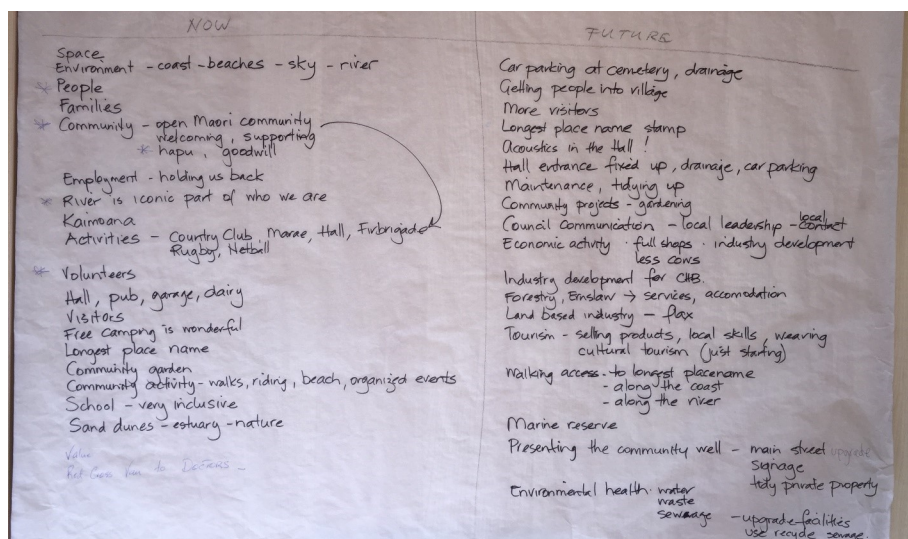 NOW
Space
Environment - coast - beaches - sky - river
* People
Families
* Community - open Maori community
welcoming, supporting
* hapu, goodwill
Employment - holding us back
* River is iconic part of who we are
Kaimoana
Activities - Country Club Marae, Hall, Firbrigade
Rugby, Netball
* Volunteers
Hall, pub, garage, dairy
Visitors
Free camping is wonderful
Longest place name
Community garden
Community activity - walks, riding, beach, organized events
School - very inclusive
Sand dunes - estuary - nature
Value
FUTURE
Car parking at cemetery, drainage
Getting people into village
More visitors
Longest place name stamp
Acoustics in the Hall !
Hall entrance fixed up, drainage, car parking
Maintenance, tidying up
Community projects - gardening
Council communication - local leadership - local contact
Economic activity · full shops · industry development
less cows
Industry development for CHB.
Forestry, Ernslaw → services, accomodation
Land based industry - flax
Tourism - selling products, local skills, weaving
cultural tourism (just starting)
Walking access - to longest placename
- along the coast
- along the river
Marine reserve
Presenting the community well - main street upgrade
signage
tidy private property
Environmental health · water
waste
sewaage - upgrade facilities
use recycle sewage.